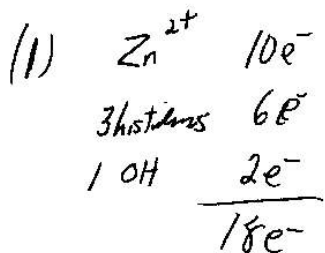 (1) Zn²⁺ 10e⁻
3 histidines 6e⁻
1 OH 2e⁻
18e⁻